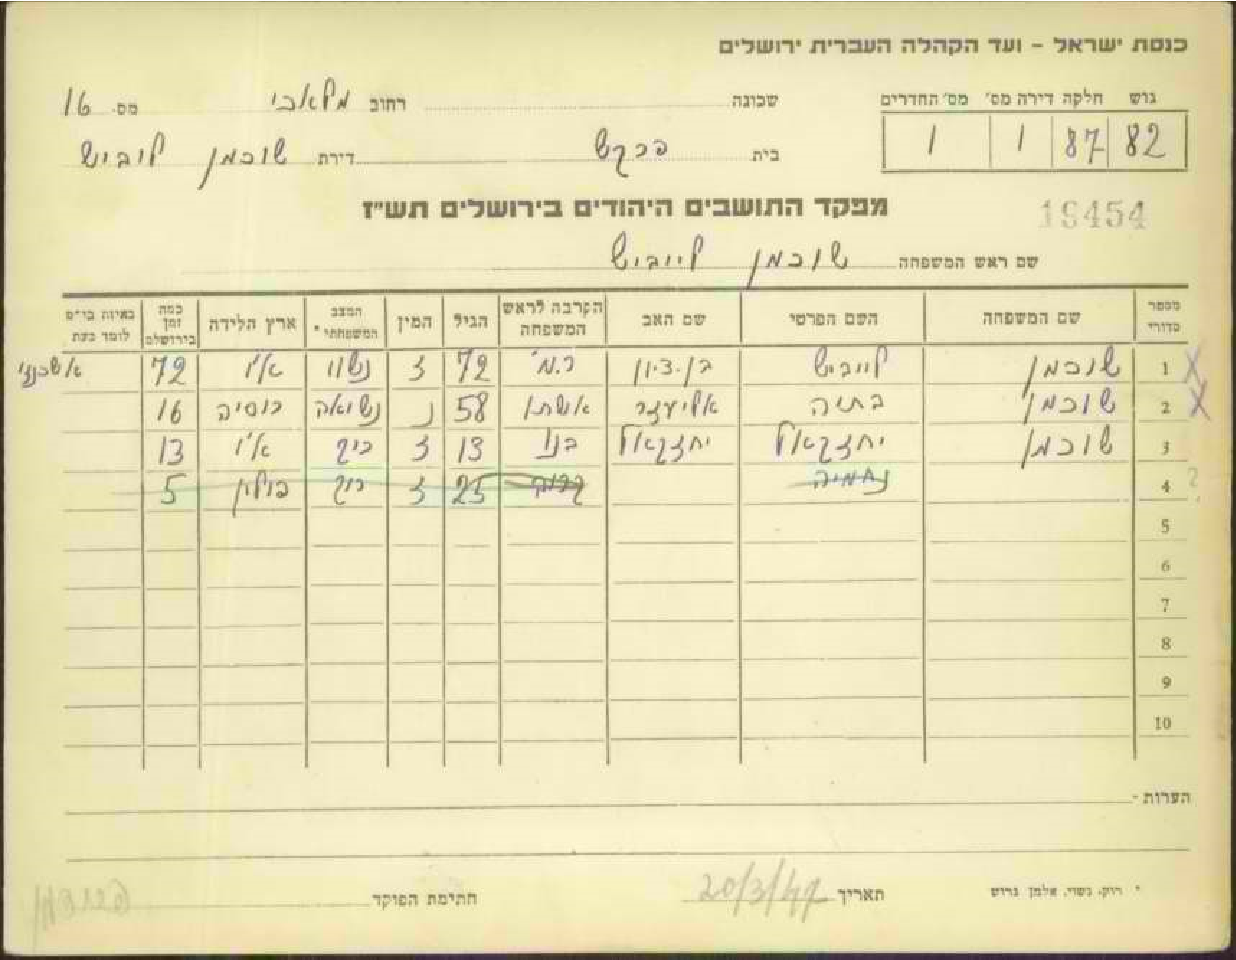 כנסת ישראל – ועד הקהלה העברית ירושלים
גוש חלקה דירה מס' מס' החדרים
82 87 1 1
שכונה רחוב מלאכי מס- 16
בית ברקש דירת שוכמן לוביש
מפקד התושבים היהודים בירושלים תש"ז
19454
שם ראש המשפחה שוכמן לייביש
מספר סדורי שם המשפחה השם הפרטי שם האב הקרבה לראש המשפחה הגיל המין המצב המשפחתי * ארץ הלידה כמה זמן בירושלם באיזה בי"ס לומד כעת
1 שוכמן לייביש בן-ציון ר.מ' 72 ז נשוי א"י 72 אשכנזי
2 שוכמן בתיה אליעזר אשתו 58 נ נשואה רוסיה 16
3 שוכמן יחזקאל יחזקאל בנו 13 ז ריק א"י 13
4 נחמיה 25 ז רוק פולין 5
5
6
7
8
9
10
הערות -
* רוק, נשוי, אלמן גרוש תאריך 20/3/47 חתימת הפוקד